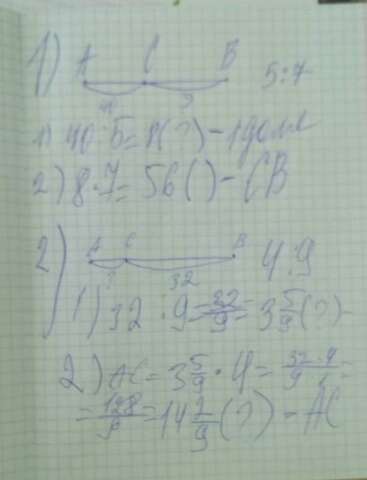 1) A C B 5:7
40 ?
1) 40:5=8(?)-1 доля
2) 8·7=56( )-CB
2) A C B 4:9
? 32
1) 32:9=32/9=3 5/9(?)-
2) AC=3 5/9·4=32·4/9=
=128/9=14 2/9(?)-AC